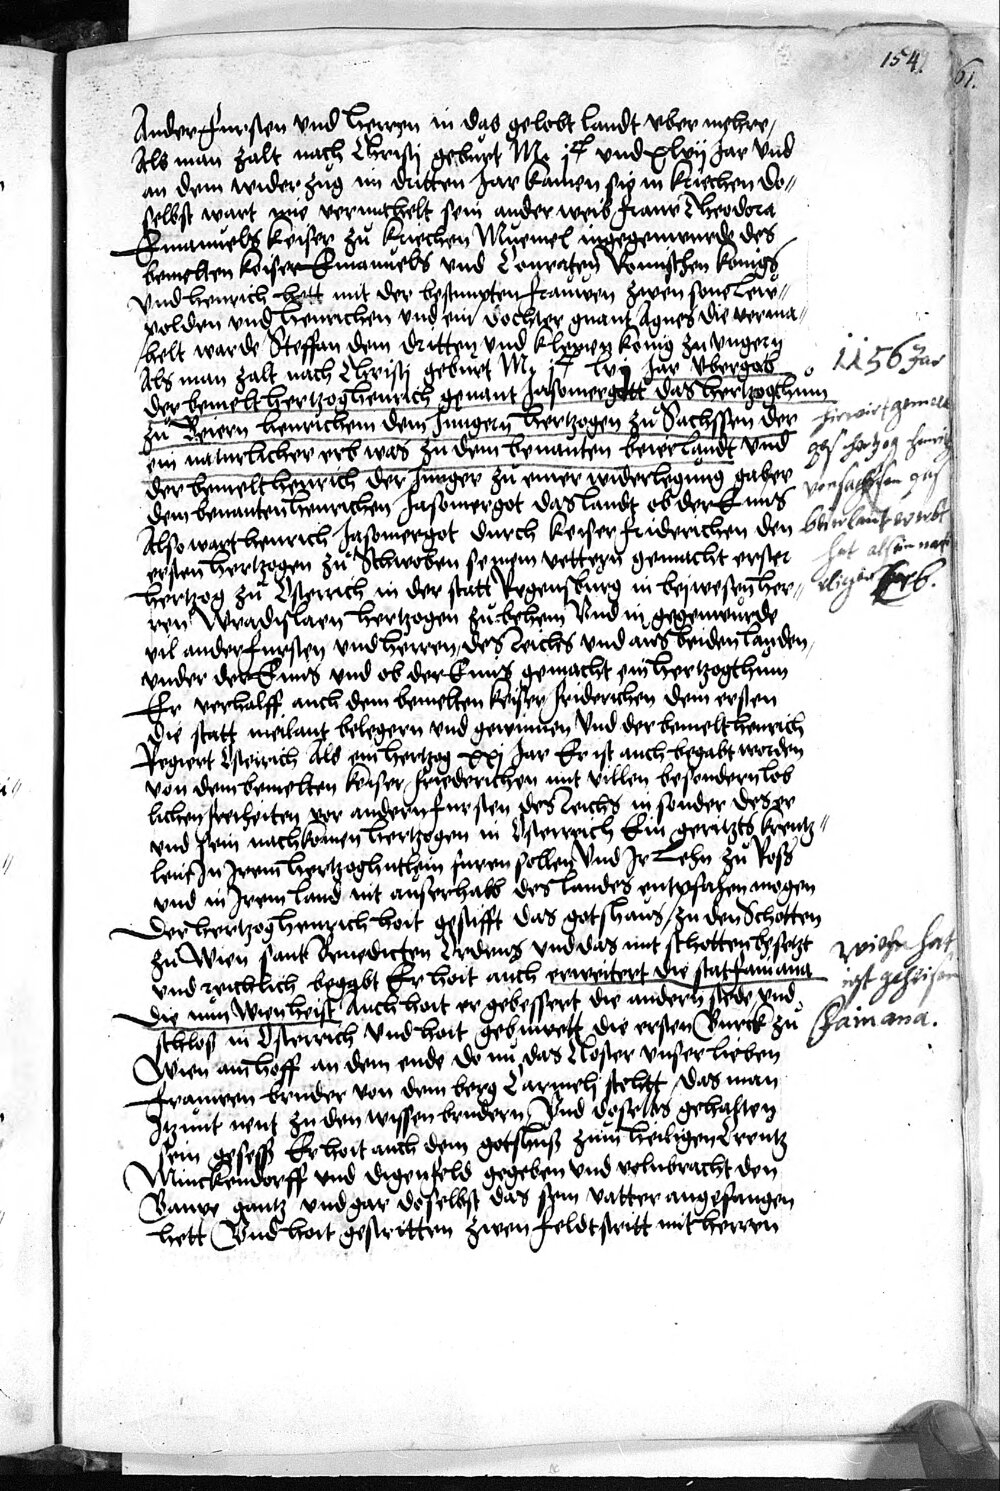 154.
61.
Ander Fursten vnd Herren in das gelobt landt vber mehre,
Als man zalt nach Christi geburt M. jᶜ vnd xlvij Jar vnd
an dem widerzug im dritten Jar kamen sie in kriechen do-
selbst wart ime vermahelt sein ander weib fraw Theodora
Emanuels keiser zu kriechen in gegenwurde des
bemelten keiser Emanuels vnd Conraten Romischen konigs
vnd Henrich hett mit der bestimpten frauwen zwen sone Leu-
polden vnd Henrichen vnd ein dochter gnant Agnes die verma-
helt warde Steffan dem dritten vnd kleinen konig zu vngern
Als man zalt nach Christi geburt M. jᶜ lvj Jar vbergab
der bemelt Hertzog Henrich genant Jasomergott das Hertzogthum
zu Beiern Henrichem dem Jungern Hertzogen zu Sachssen der
ein naturlicher erb was zu dem benanten beier landt vnd
der bemelt Henrich der Junger zu einer widerlegung gaber
dem benanten Henrichen Jasomergot das landt ob der Enns
Also wart Henrich Jasomergot durch keiser friderichen den
ersten Hertzogen zu Schwoben seinem vettern gemacht erster
Hertzog zu Osterrich in der statt Regensburg in beiwesen Her-
ren Wradislaen Hertzogen zu behem Vnd in gegenwurde
vil ander fursten vnd Herren, des Reichs vnd aus beiden landen,
vnder der Enns vnd ob der Enns gemacht ein Hertzogthum
Er verhalff auch dem bemelten keiser friderichen dem ersten
die statt meilant belegern vnd gewinnen Vnd der bemelt Henrich
Regiert Osterrich Als ein Hertzog xxj Jar Er ist auch begabt worden
von dem bemelten keiser friederichen mit villen besondern lob
lichen freiheiten vor andern fursten des Reichs in sonder des er
vnd sein nachkomen Hertzogen in Osterreich Ein geritzts kreutz-
lein In Irem Hertzoghutlein furen sollen Vnd Ir Lehn zu Ross
vnd in Irem land nit ausserhalb des landes entpfahen mogen
Der Hertzog Henrich hoit gestifft das gotshaus zu den Schotten
zu Wien sant Benedicten Ordens vnd das mit schotten besetzt
vnd reichlich begabt Er hoit auch erweitert die stat faniana
die nun Wien heist Auch hoit er gebessert die andern stede vnd
schloss in Osterrich vnd hoit gebuwett die ersten Burck zu
Wien am hoff an dem ende do nu das Closter vnser lieben
frauwen bruder von dem berg Carmeli stehtt das man
Itzunt nent zu den wissen brudern Vnd doselbs gehalten
sein gesess Er hoit auch dem gotshuss zum heiligen Creutz
Minckendorff vnd digenfeld gegeben vnd volnbracht den
Bauwe gantz vnd gar doselbst das sein vatter angefangen
hett Vnd hoit gestritten zwen feldtstritt mit Herren
1156 Jar
hie wirt gemelt
das hertzog Henrich
von sachsen das
beierlant ererbt
hat als ein nat
erb.
wiehn hat
ist geheisen
Fainana.